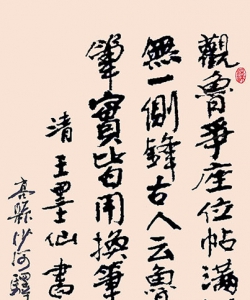 觀魯爭座位帖滿
無一側鋒古人云魯
筆實皆用換筆
清王墨仙書
高縣沙河驛